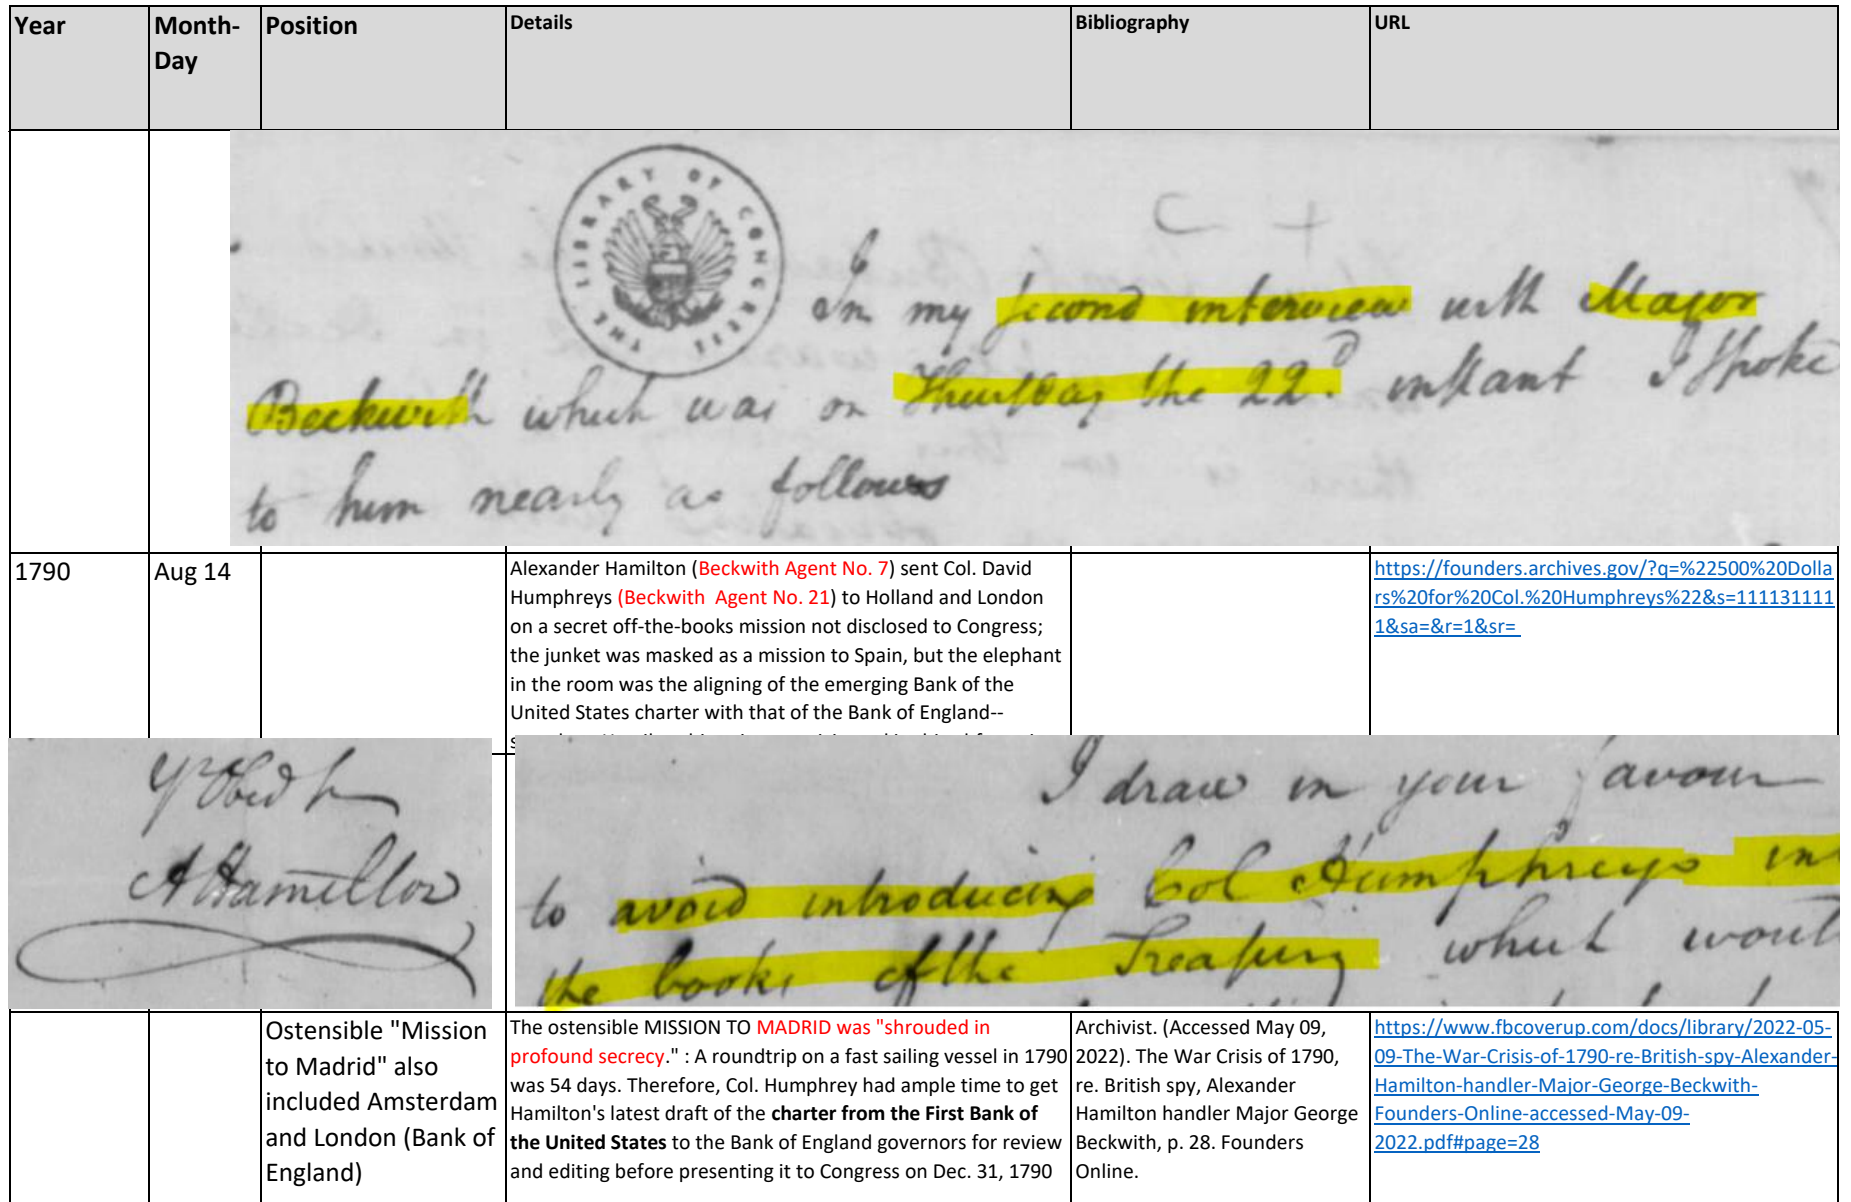 Year
Month-
Day
Position
Details
Bibliography
URL
THE LIBRARY OF CONGRESS
In my second interview with Major
Beckwith which was on Thursday the 22.d instant I spoke
to him nearly as follows
1790
Aug 14
Alexander Hamilton (Beckwith Agent No. 7) sent Col. David
Humphreys (Beckwith  Agent No. 21) to Holland and London
on a secret off-the-books mission not disclosed to Congress;
the junket was masked as a mission to Spain, but the elephant
in the room was the aligning of the emerging Bank of the
United States charter with that of the Bank of England--
https://founders.archives.gov/?q=%22500%20Dolla
rs%20for%20Col.%20Humphreys%22&s=111131111
1&sa=&r=1&sr=
A Hamilton
I draw in your favour
to avoid introducing Col Humphreys in
the books of the Treasury which woul
Ostensible "Mission
to Madrid" also
included Amsterdam
and London (Bank of
England)
The ostensible MISSION TO MADRID was "shrouded in
profound secrecy." : A roundtrip on a fast sailing vessel in 1790
was 54 days. Therefore, Col. Humphrey had ample time to get
Hamilton's latest draft of the charter from the First Bank of
the United States to the Bank of England governors for review
and editing before presenting it to Congress on Dec. 31, 1790
Archivist. (Accessed May 09,
2022). The War Crisis of 1790,
re. British spy, Alexander
Hamilton handler Major George
Beckwith, p. 28. Founders
Online.
https://www.fbcoverup.com/docs/library/2022-05-
09-The-War-Crisis-of-1790-re-British-spy-Alexander-
Hamilton-handler-Major-George-Beckwith-
Founders-Online-accessed-May-09-
2022.pdf#page=28